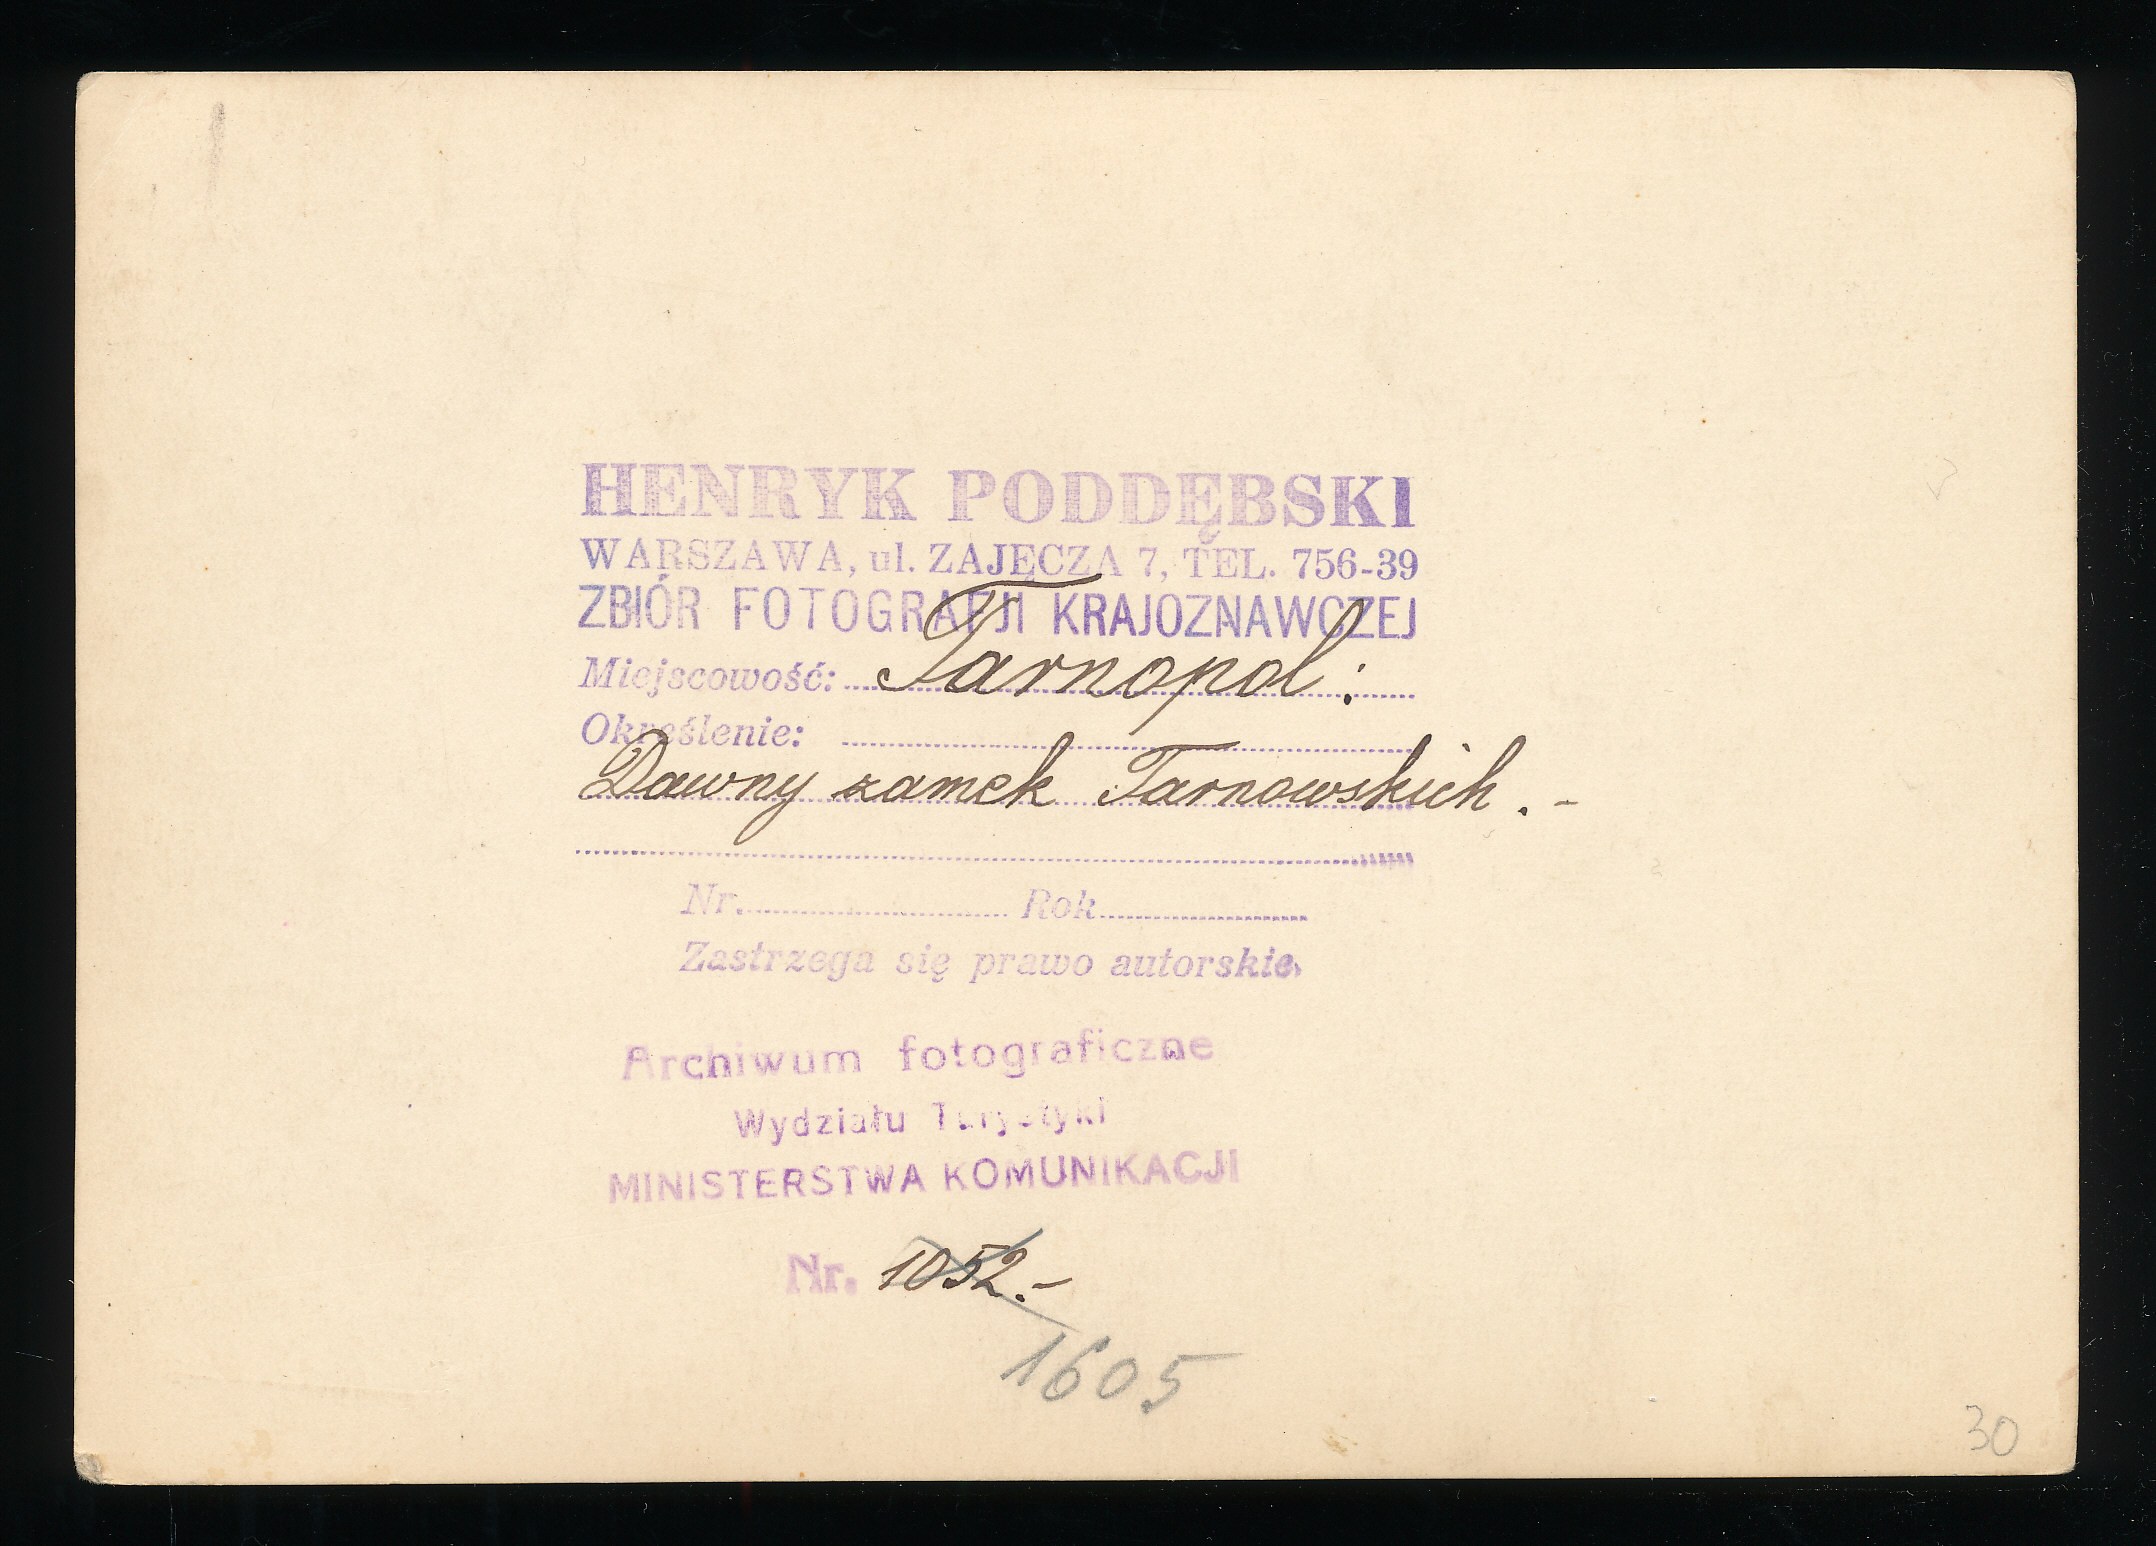 HENRYK PODDĘBSKI
WARSZAWA, ul. ZAJĘCZA 7, TEL. 756-39
ZBIÓR FOTOGRAFJI KRAJOZNAWCZEJ
Miejscowość: Tarnopol:
Określenie:
Dawny zamek Tarnowskich.-
Nr. Rok
Zastrzega się prawo autorskie.
Archiwum fotograficzne
Wydziału Turystyki
MINISTERSTWA KOMUNIKACJI
Nr. 1052.-
1605
30